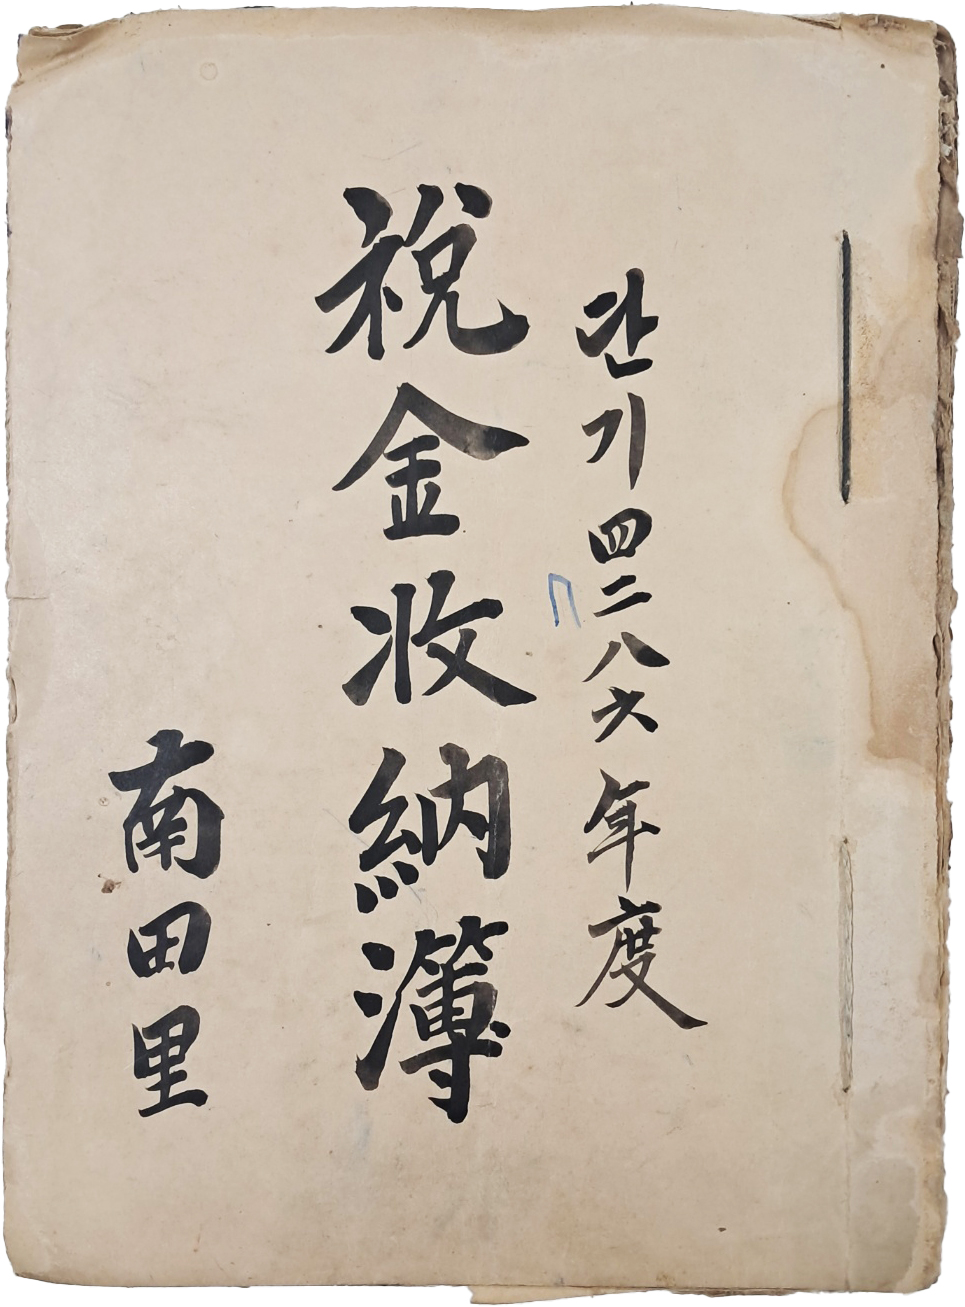 단기四二八六年度
稅金收納簿
南田里